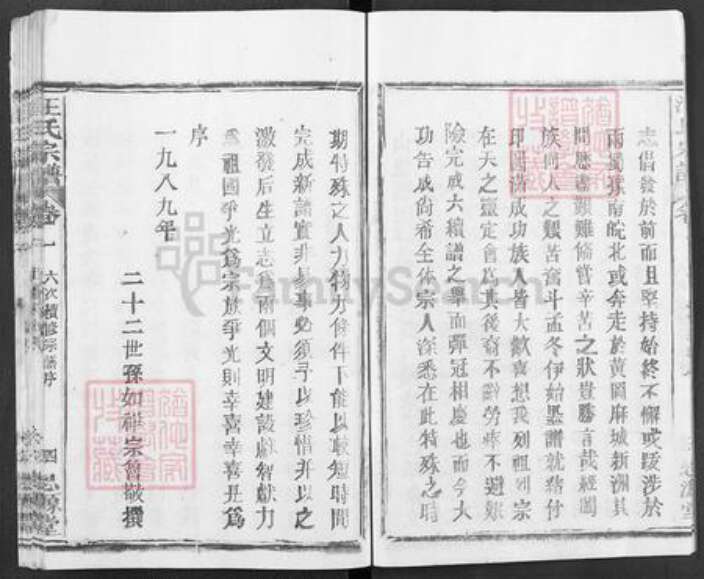 志倡發於前而且堅持始終不懈或跋涉於
兩蜀孫南皖北或奔走於黃岡麻城新洲其
間歷盡艱難備嘗辛苦之狀豈勝言哉經闔
族同人之艱苦奮斗孟冬伊始墨譜就緒付
印圓滿成功族人皆大歡喜想我列祖列宗
在天之靈定會為其後裔不辭勞瘁不避艱
險完成六續譜之舉而彈冠相慶也而今大
功告成尚希全体宗人深悉在此特殊之時
期特殊之人力物力條件下能以較短時間
完成新譜實非易事必須予以珍惜并以之
激發后生立志為兩個文明建設獻智獻力
為祖國爭光為宗族爭光則幸喜幸喜并為
序
一九八九年
二十二世孫如祥宗魯敬撰
汪氏宗譜
卷一
六次續修宗譜序
四
思源堂
FamilySearch